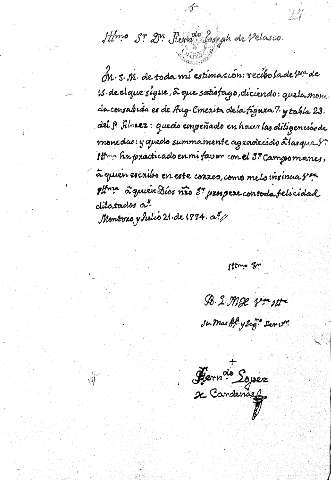 27
Illmo. Sr. Dn. Ferndo. Joseph de Velasco.
M. S. M. de toda mi estimacion: recibo la de
15. de el que sigue, à que satisfago, diciendo: que la mone
da consabida es de Aug. Emerita de la figura 7. y tabla 23.
del P. Florez: quedo empeñado en hacer las diligencias de
monedas: y quedo summamente agradecido à las que
Illma. ha practicado en mi favor con el Sr. Campomanes,
à quien escribo en este correo, como me lo insinua
Illma. à quien Dios nro. Sr. prospere con toda felicidad
dilatados as.
Montoro, y Julio 21. de 1774. as.
Illmo. Sr.
B. L. M. Illma.
su mas y Sero.
Ferndo. Lopez
de Cardenas